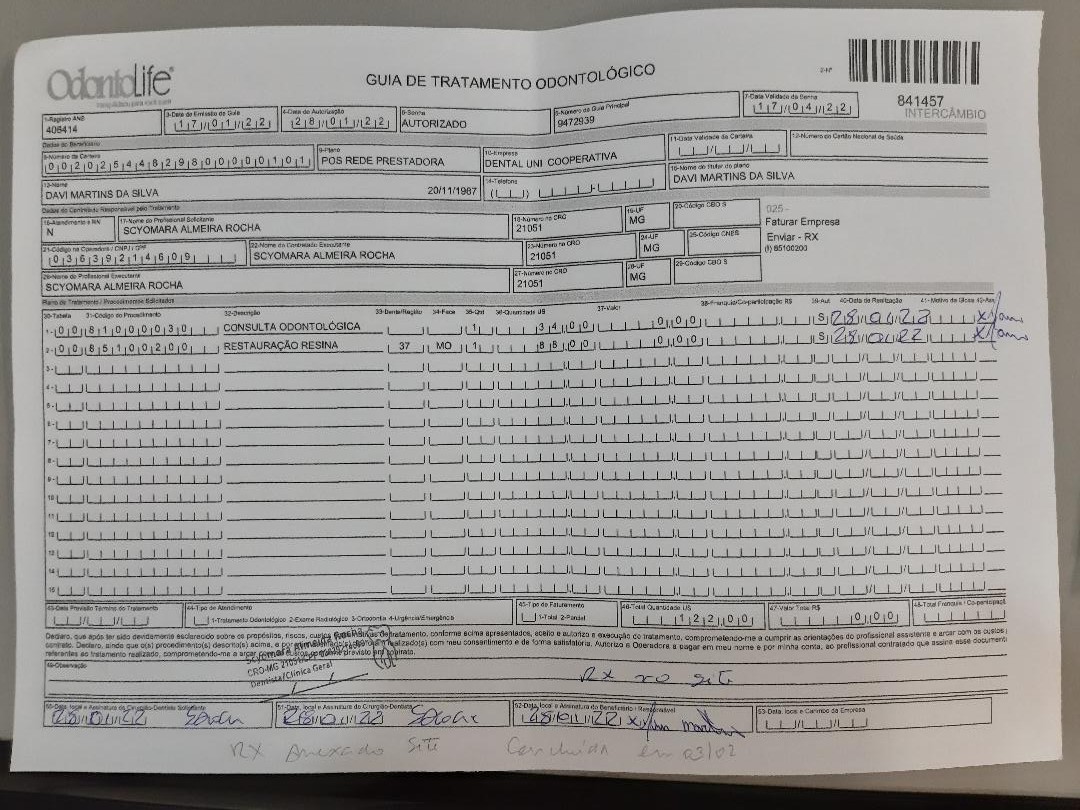 OdontoLife
GUIA DE TRATAMENTO ODONTOLÓGICO
2-Nº
841457
INTERCÂMBIO
1-Registro ANS
406414
3-Data de Emissão da Guia
17/01/22
4-Data de Autorização
28/01/22
5-Senha
AUTORIZADO
6-Número da Guia Principal
9472939
7-Data Validade da Senha
17/04/22
Dados do Beneficiário
8-Número da Carteira
00202544829800000101
9-Plano
POS REDE PRESTADORA
10-Empresa
DENTAL UNI COOPERATIVA
11-Data Validade da Carteira
12-Número do Cartão Nacional de Saúde
13-Nome
DAVI MARTINS DA SILVA 20/11/1987
14-Telefone
15-Nome do titular do plano
DAVI MARTINS DA SILVA
Dados do Contratado Responsável pelo Tratamento
16-Atendimento a RN
N
17-Nome do Profissional Solicitante
SCYOMARA ALMEIRA ROCHA
18-Número no CRO
21051
19-UF
MG
20-Código CBO S
025 -
Faturar Empresa
Enviar - RX
(I) 85100200
21-Código na Operadora / CNPJ / CPF
03639214609
22-Nome do Contratado Executante
SCYOMARA ALMEIRA ROCHA
23-Número no CRO
21051
24-UF
MG
25-Código CNES
26-Nome do Profissional Executante
SCYOMARA ALMEIRA ROCHA
27-Número no CRO
21051
28-UF
MG
29-Código CBO S
Plano de Tratamento / Procedimentos Solicitados
30-Tabela 31-Código do Procedimento 32-Descrição 33-Dente/Região 34-Face 35-Qtd 36-Quantidade US 37-Valor 38-Franquia/Co-participação R$ 39-Aut 40-Data de Realização 41-Motivo da Glosa 42-Ass
1- 00 81000030 CONSULTA ODONTOLÓGICA 1 34 00 0 00 S 28/01/22
2- 00 85100200 RESTAURAÇÃO RESINA 37 MO 1 88 00 0 00 S 28/01/22
3-
4-
5-
6-
7-
8-
9-
10-
11-
12-
13-
14-
15-
43-Data Previsão Término do Tratamento
44-Tipo de Atendimento
1-Tratamento Odontológico 2-Exame Radiológico 3-Ortodontia 4-Urgência/Emergência
45-Tipo de Faturamento
1-Total 2-Parcial
46-Total Quantidade US
122 00
47-Valor Total R$
0 00
48-Total Franquia / Co-participação
Declaro, que após ter sido devidamente esclarecido sobre os propósitos, riscos, custos e alternativas de tratamento, conforme acima apresentados, aceito e autorizo a execução do tratamento, comprometendo-me a cumprir as orientações do profissional assistente e arcar com os custos
contrato. Declaro, ainda que o(s) procedimento(s) descrito(s) acima, e por mim assinado(s) foi/foram realizado(s) com meu consentimento e de forma satisfatória. Autorizo a Operadora a pagar em meu nome e por minha conta, ao profissional contratado que assina esse documento
referentes ao tratamento realizado, comprometendo-me a arcar
previsto em contrato.
Scyomara Almeira Rocha
CRO-MG 21051
Dentista/Clínica Geral
49-Observação
RX no site
50-Data, local e Assinatura do Cirurgião-Dentista Solicitante
28/01/22
51-Data, local e Assinatura do Cirurgião-Dentista
28/01/22
52-Data, local e Assinatura do Beneficiário / Responsável
28/01/22
53-Data, local e Carimbo da Empresa
RX Anexado Site Concluída em 03/02